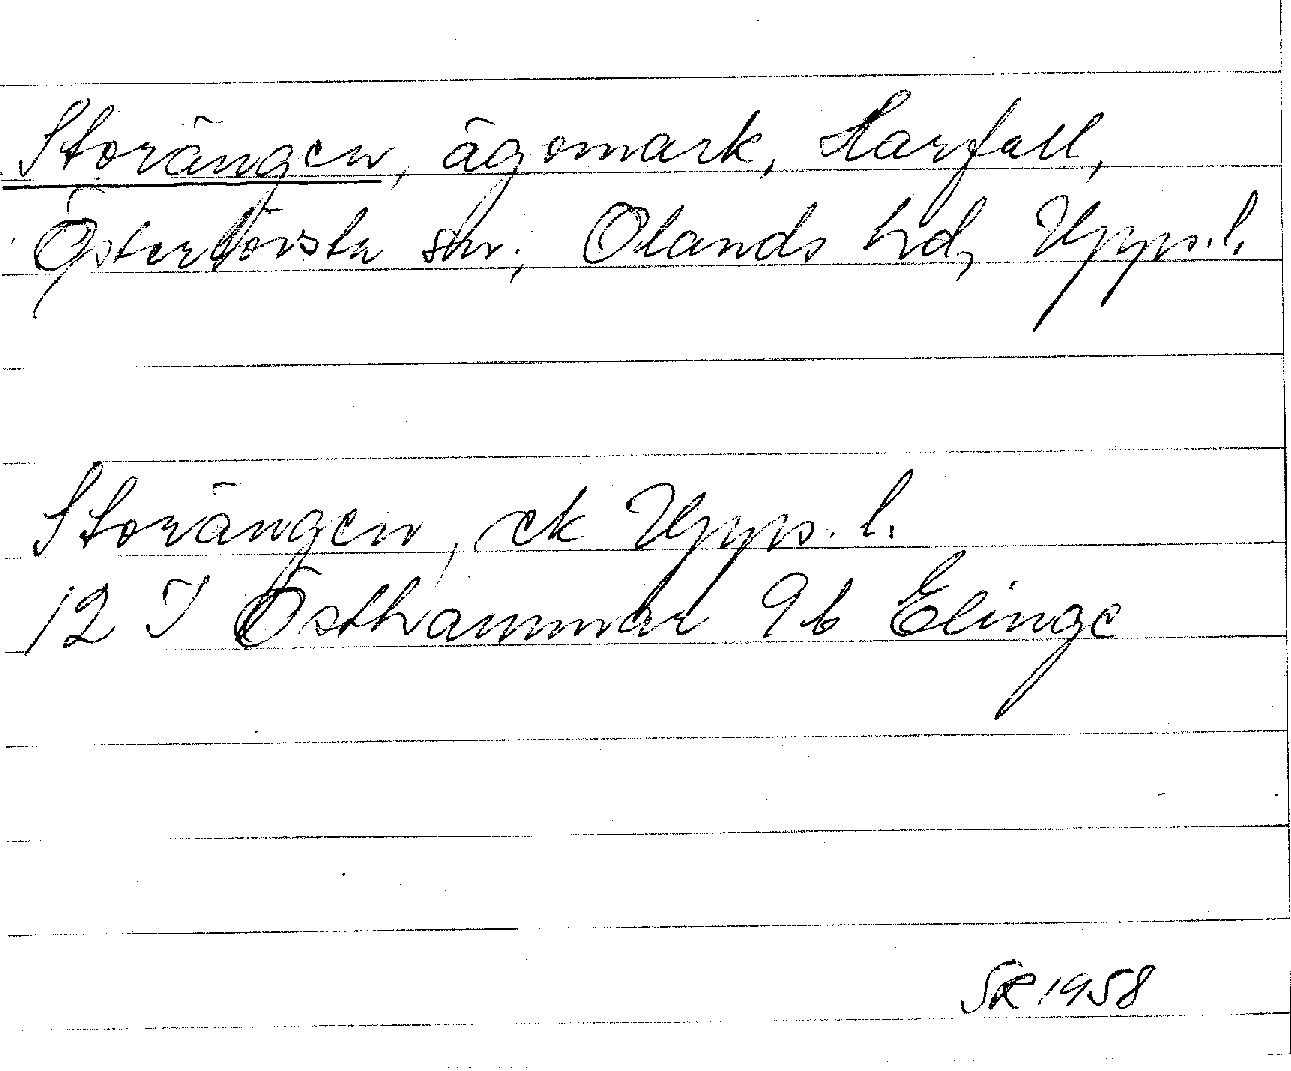 Storängen, ägomark, Harfall,
Österlövsta sn., Olands hd, Upps.l.
Storängen, ek Upps. l.
12 I Östhammar 9b Elinge
SR 1958